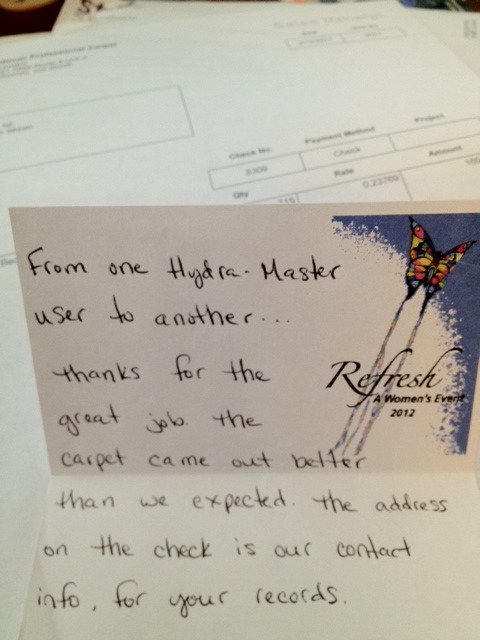 Professional Carpet
Check No.
Payment Method
Project
6309
Check
Qty
Rate
Amount
0.23769
From one Hydra-Master
user to another...
thanks for the
great job. the
carpet came out better
than we expected. the address
on the check is our contact
info, for your records.
Refresh
A Women's Event
2012